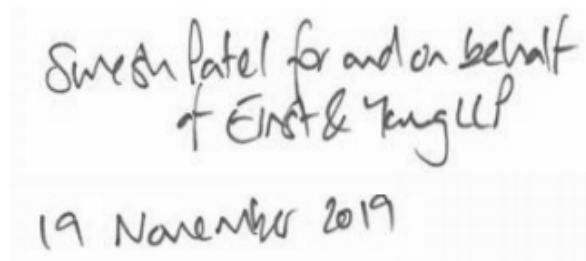 Suresh Patel for and on behalf
of Ernst & Young LLP
19 November 2019